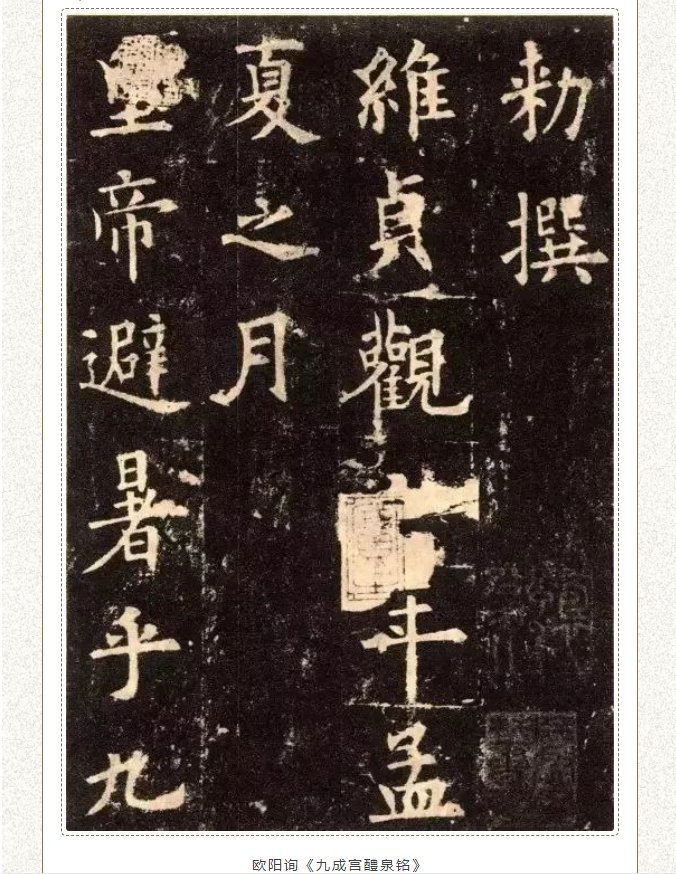 勑撰
維貞觀年孟
夏之月
皇帝避暑乎九
欧阳询《九成宫醴泉铭》